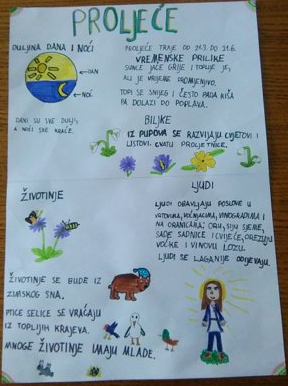 PROLJEĆE
DULJINA DANA I NOĆI
DAN
NOĆ
DANI SU SVE DULJI,
A NOĆI SVE KRAĆE.
PROLJEĆE TRAJE OD 21.3. DO 21.6.
VREMENSKE PRILIKE
SUNCE JAČE GRIJE I TOPLIJE JE,
ALI JE VRIJEME PROMJENJIVO.
TOPI SE SNIJEG I ČESTO PADA KIŠA
PA DOLAZI DO POPLAVA.
BILJKE
IZ PUPOVA SE RAZVIJAJU CVJETOVI I
LISTOVI. CVATU PROLJETNICE.
ŽIVOTINJE
ŽIVOTINJE SE BUDE IZ
ZIMSKOG SNA.
PTICE SELICE SE VRAĆAJU
IZ TOPLIJIH KRAJEVA.
MNOGE ŽIVOTINJE IMAJU MLADE.
LJUDI
LJUDI OBAVLJAJU POSLOVE U
VRTOVIMA, VOĆNJACIMA, VINOGRADIMA I
NA ORANICAMA: ORU, SIJU SJEME,
SADE SADNICE I CVIJEĆE, OREZUJU
VOĆKE I VINOVU LOZU.
LJUDI SE LAGANIJE ODIJEVAJU.